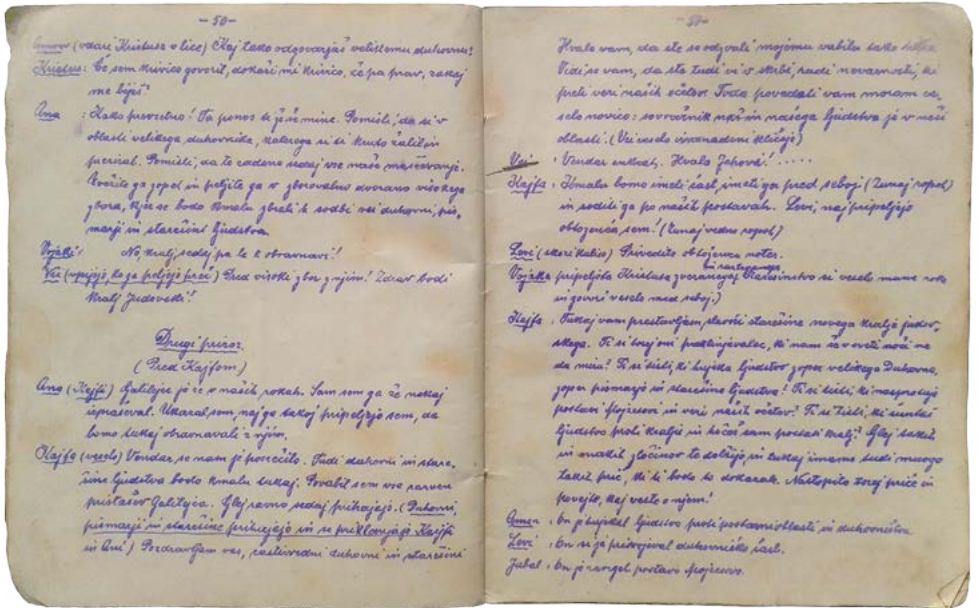 - 50 -
Amon (udari Kristusa v lice) Kaj tako odgovarjaš velikemu duhovnu?
Kristus: Če sem krivico govoril, dokaži mi krivico, če pa prav, zakaj
me biješ?
Ana : Kako prevzetno! Ta ponos ti ješe mine. Pomisli, da si v
oblasti velikega duhovnika, katerega si ti kruto žalil in
preziral. Pomisli, da te zadene sedaj vse naše maščevanje.
Zvežite ga zopet in peljite ga v zborovalno dvorano visokega
zbora, kjer se bodo kmalu zbrali k sodbi vsi duhovni, pis-
marji in starešini ljudstva.
Vojaki: No, kralj, sedaj pa le k obravnavi!
Vsi (vpijejo, ko ga peljejo preč) Pred visoki zbor z njim! Zdrav bodi
Kralj Judovski!
Drugi prizor.
(Pred Kajfom)
Ana (Kajfi) Galilejc je že v naših rokah. Sam sem ga že nekaj
izpraševal. Ukazal sem, naj ga takoj pripeljejo sem, da
bomo tukaj obravnavali z njim.
Kajfa (veselo) Vendar, se nam je posrečilo. Tudi duhovni in stare-
šine ljudstva bodo kmalu tukaj. Povabil sem vse razven
pristašev Galilejca. Glej ravno sedaj prihajajo. (Duhovni,
pismarji in starešine prihajajo in se priklanjajo Kajfi
in Ani) Pozdravljam vas, častivredni duhovni in starešini
- 51 -
Hvala vam, da ste se odzvali mojemu vabilu tako
Vidi se vam, da ste tudi vi v skrbi, radi nevarnosti, ki
preti veri naših očetov. Toda povedati vam moram ve-
selo novico: sovražnik naš in našega ljudstva je v naši
oblasti. (Vsi veselo iznenadeni kličejo)
Vsi : Vendar enkrat. Hvala Jehova! .....
Kajfa : Kmalu bomo imeli čast, imeti ga pred seboj (Zunaj ropot)
in soditi ga po naših postavah. Levi, naj pripeljejo
obtoženca sem! (Zunaj vedno ropot)
Levi (skozi kuliso) Privedite obtoženca noter.
Vojaka pripeljeta Kristusa zvezanega. Starešinstvo si veselo mane roke
in govori veselo med seboj.)
Kajfa : Tukaj vam predstavljam, slavni starešine novega kralja judov-
skega. Ti si torej oni
da miru? Ti si tisti, ki hujska ljudstvo zoper velikega Duhovna,
zoper pismarje in starešine ljudstva? Ti si tisti, ki nasprotuje
postavi Mojzesovi in veri naših očetov? Ti si tisti, ki
ljudstvo proti kralju in hočeš sam postati kralj? Glej takih
in enakih zločinov te dolžijo, in tukaj imamo tudi mnogo
takih prič, ki ti bodo to dokazale. Nastopite torej priče in
povejte, kaj veste o njem!
Amon : On je hujskal ljudstvo proti postavni oblasti in duhovništvu
Levi : On si je prisvojeval duhovniško čast.
Jubal : On je zavrgel postavo Mojzesovo.